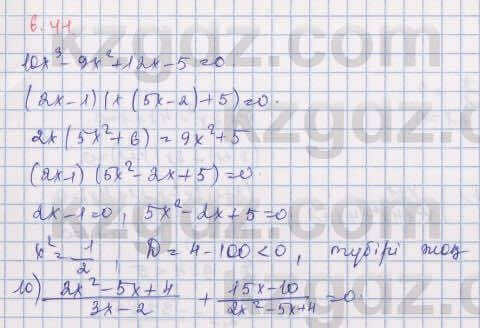 6.44
10x³-9x²+12x-5=0.
(2x-1)(x(5x-2)+5)=0.
2x(5x²+6)=9x²+5
(2x-1)(5x²-2x+5)=0
2x-1=0, 5x²-2x+5=0
x²=1/2, D=4-100<0, түбірі жоқ
10) (2x²-5x+4)/(3x-2) + (15x-10)/(2x²-5x+4)=0.
kzgdz.com